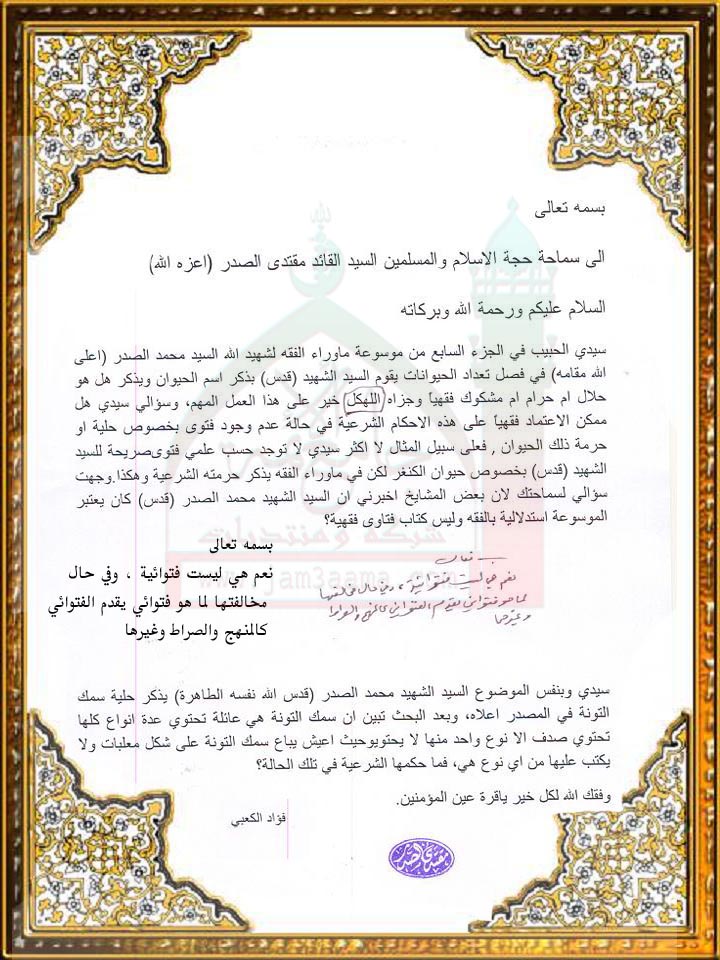 بسمه تعالى
الى سماحة حجة الاسلام والمسلمين السيد القائد مقتدى الصدر (اعزه الله)
السلام عليكم ورحمة الله وبركاته
سيدي الحبيب في الجزء السابع من موسوعة ماوراء الفقه لشهيد الله السيد محمد الصدر (اعلى
الله مقامه) في فصل تعداد الحيوانات يقوم السيد الشهيد (قدس) بذكر اسم الحيوان ويذكر هل هو
حلال ام حرام ام مشكوك فقهياً وجزاه اللهكل خير على هذا العمل المهم، وسؤالي سيدي هل
ممكن الاعتماد فقهياً على هذه الاحكام الشرعية في حالة عدم وجود فتوى بخصوص حلية او
حرمة ذلك الحيوان , فعلى سبيل المثال لا اكثر سيدي لا توجد حسب علمي فتوىصريحة للسيد
الشهيد (قدس) بخصوص حيوان الكنغر لكن في ماوراء الفقه يذكر حرمته الشرعية وهكذا.وجهت
سؤالي لسماحتك لان بعض المشايخ اخبرني ان السيد الشهيد محمد الصدر (قدس) كان يعتبر
الموسوعة استدلالية بالفقه وليس كتاب فتاوى فقهية؟
بسمه تعالى
نعم هي ليست فتوائية ، وفي حال
مخالفتها لما هو فتوائي يقدم الفتوائي
كالمنهج والصراط وغيرها
نعم هي ليست فتوائية ، وفي حال مخالفتها
لما هو فتوائي يقدم الفتوائي كالمنهج والصراط
وغيرها
شبكة ومنتديات
jam3aama.com
سيدي وبنفس الموضوع السيد الشهيد محمد الصدر (قدس الله نفسه الطاهرة) يذكر حلية سمك
التونة في المصدر اعلاه، وبعد البحث تبين ان سمك التونة هي عائلة تحتوي عدة انواع كلها
تحتوي صدف الا نوع واحد منها لا يحتويوحيث اعيش يباع سمك التونة على شكل معلبات ولا
يكتب عليها من اي نوع هي، فما حكمها الشرعية في تلك الحالة؟
وفقك الله لكل خير ياقرة عين المؤمنين.
فؤاد الكعبي
مقتدى الصدر